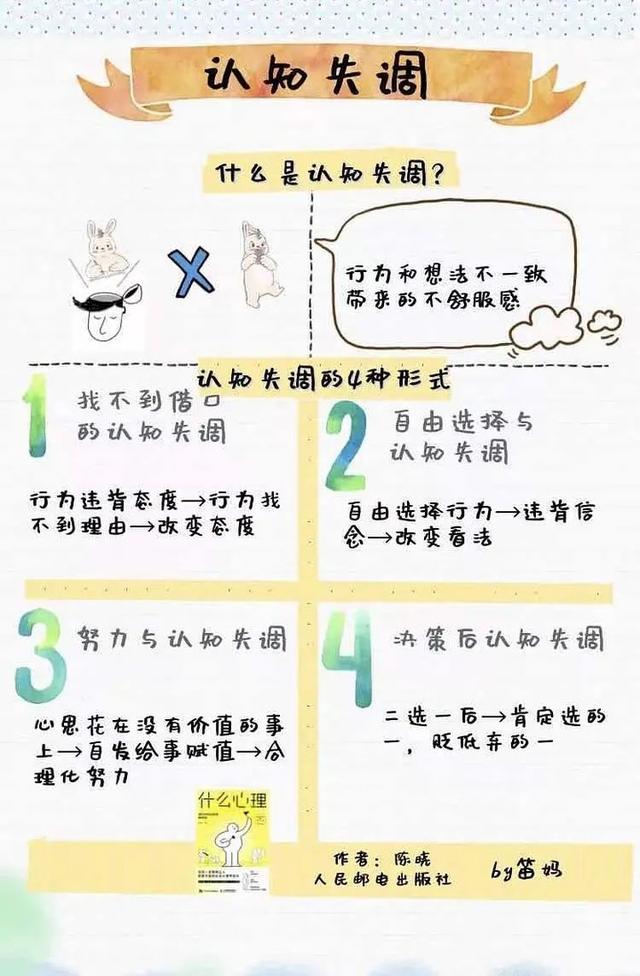 认知失调
什么是认知失调?
行为和想法不一致
带来的不舒服感
认知失调的4种形式
1
找不到借口
的认知失调
行为违背态度→行为找
不到理由→改变态度
2
自由选择与
认知失调
自由选择行为→违背信
念→改变看法
3
努力与认知失调
心思花在没有价值的事
上→自发给事赋值→合
理化努力
4
决策后认知失调
二选一后→肯定选的
一，贬低弃的一
什么心理
作者：陈晓
人民邮电出版社
by笛妈